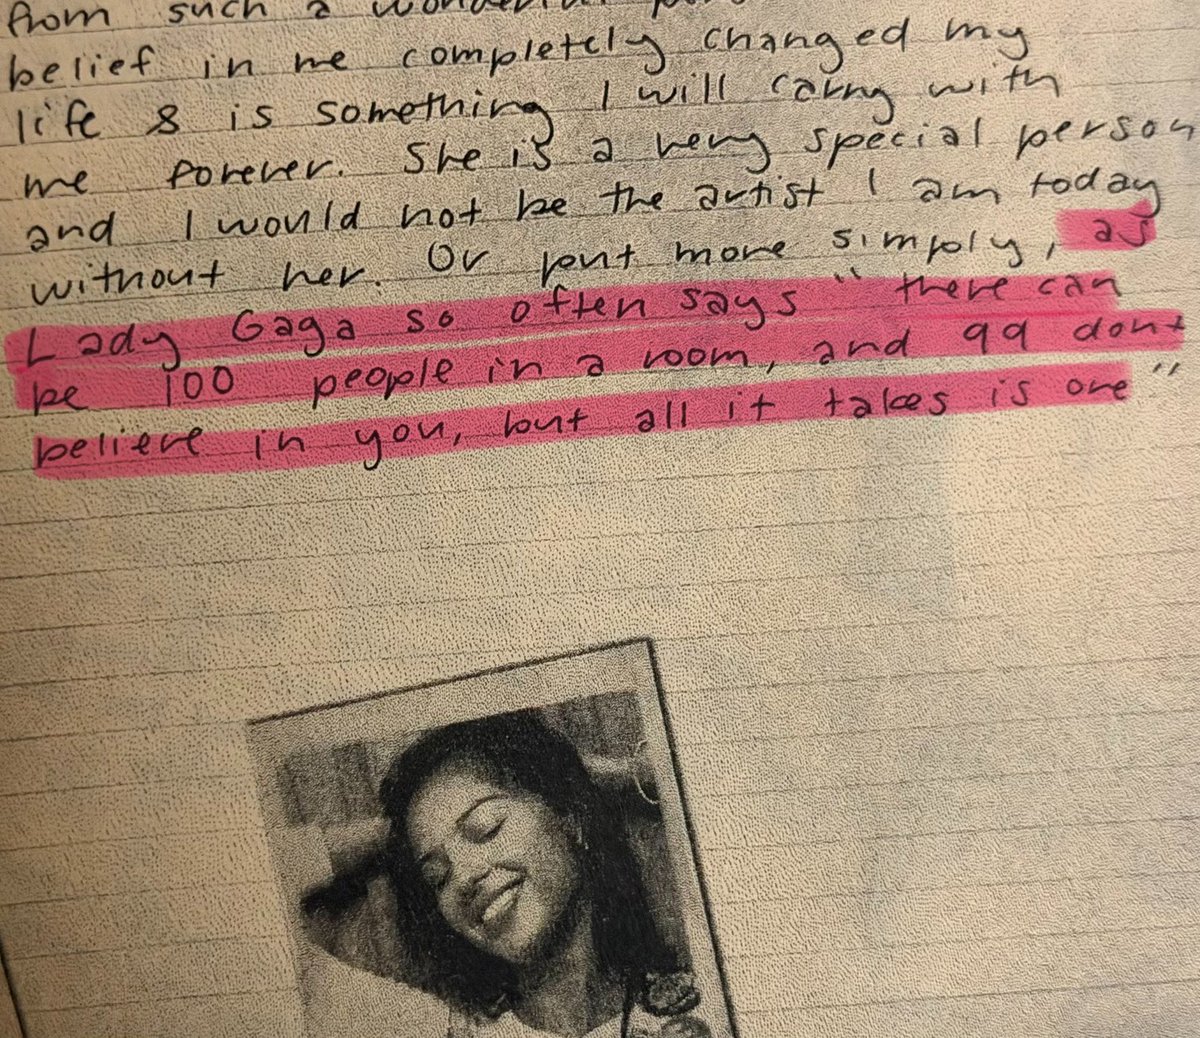 from such a wonderful
belief in me completely changed my
life & is something I will carry with
me forever. She is a very special person
and I would not be the artist I am today
without her. Or put more simply, as
Lady Gaga so often says "there can
be 100 people in a room, and 99 dont
believe in you, but all it takes is one"